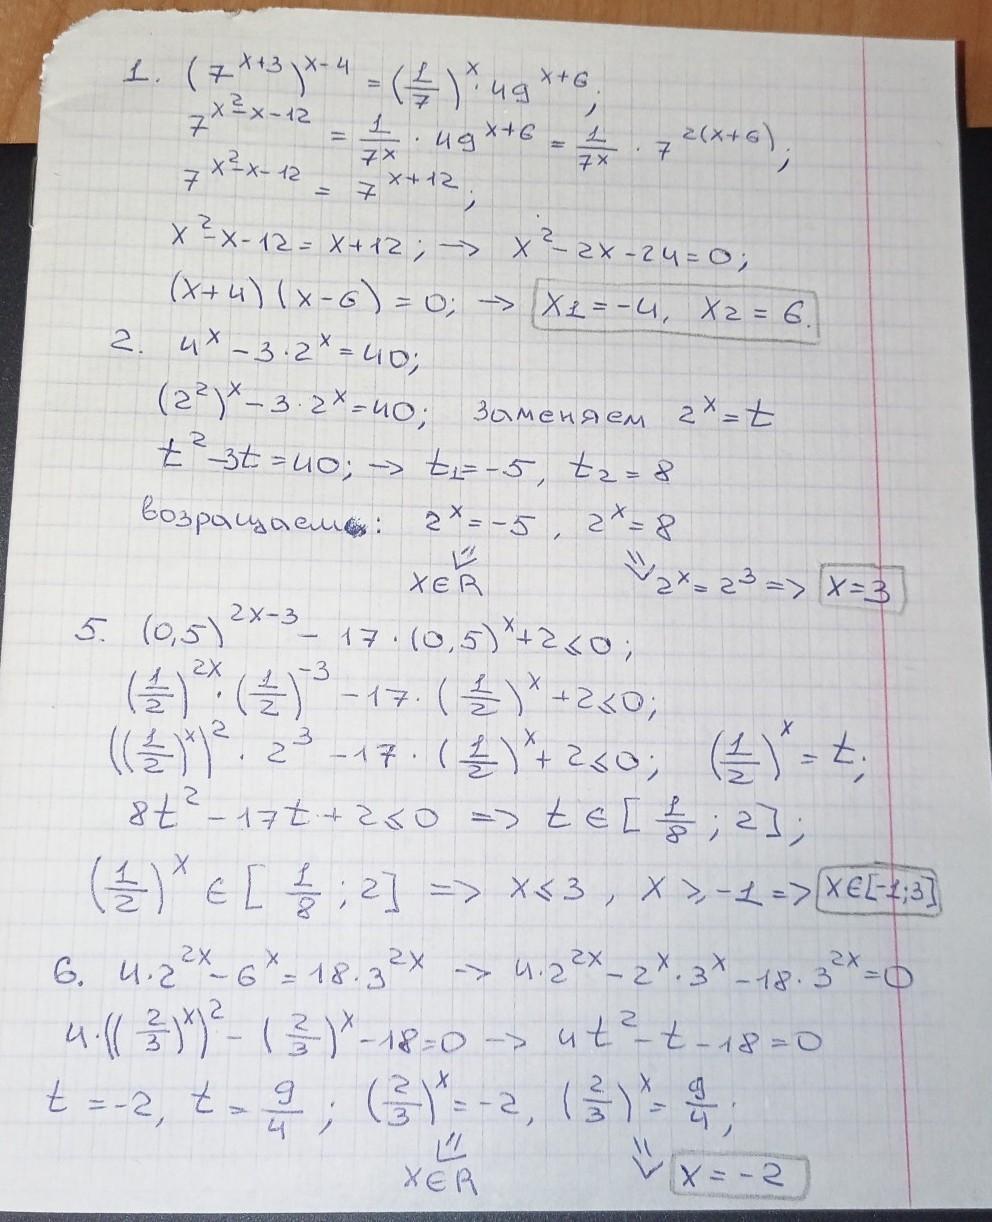 1. (7^(x+3))^(x-4) = (1/7)^x · 49^(x+6);
7^(x²-x-12) = 1/7^x · 49^(x+6) = 1/7^x · 7^(2(x+6));
7^(x²-x-12) = 7^(x+12);
x²-x-12 = x+12; → x²-2x-24=0;
(x+4)(x-6)=0; → x1=-4, x2=6.
2. 4^x - 3·2^x = 40;
(2²)^x - 3·2^x = 40; заменяем 2^x = t
t²-3t=40; → t1=-5, t2=8
возращаем: 2^x=-5, 2^x=8
⇓ x∈R ⇓ 2^x=2³ => x=3
5. (0,5)^(2x-3) - 17·(0,5)^x + 2 ≤ 0;
(1/2)^(2x) · (1/2)^(-3) - 17·(1/2)^x + 2 ≤ 0;
((1/2)^x)² · 2³ - 17·(1/2)^x + 2 ≤ 0; (1/2)^x = t;
8t² - 17t + 2 ≤ 0 => t ∈ [1/8; 2];
(1/2)^x ∈ [1/8; 2] => x ≤ 3, x ≥ -1 => x∈[-1;3]
6. 4·2^(2x) - 6^x = 18·3^(2x) → 4·2^(2x) - 2^x·3^x - 18·3^(2x) = 0
4·((2/3)^x)² - (2/3)^x - 18=0 → 4t² - t - 18 = 0
t = -2, t = 9/4; (2/3)^x = -2, (2/3)^x = 9/4;
⇓ x∈R ⇓ x = -2